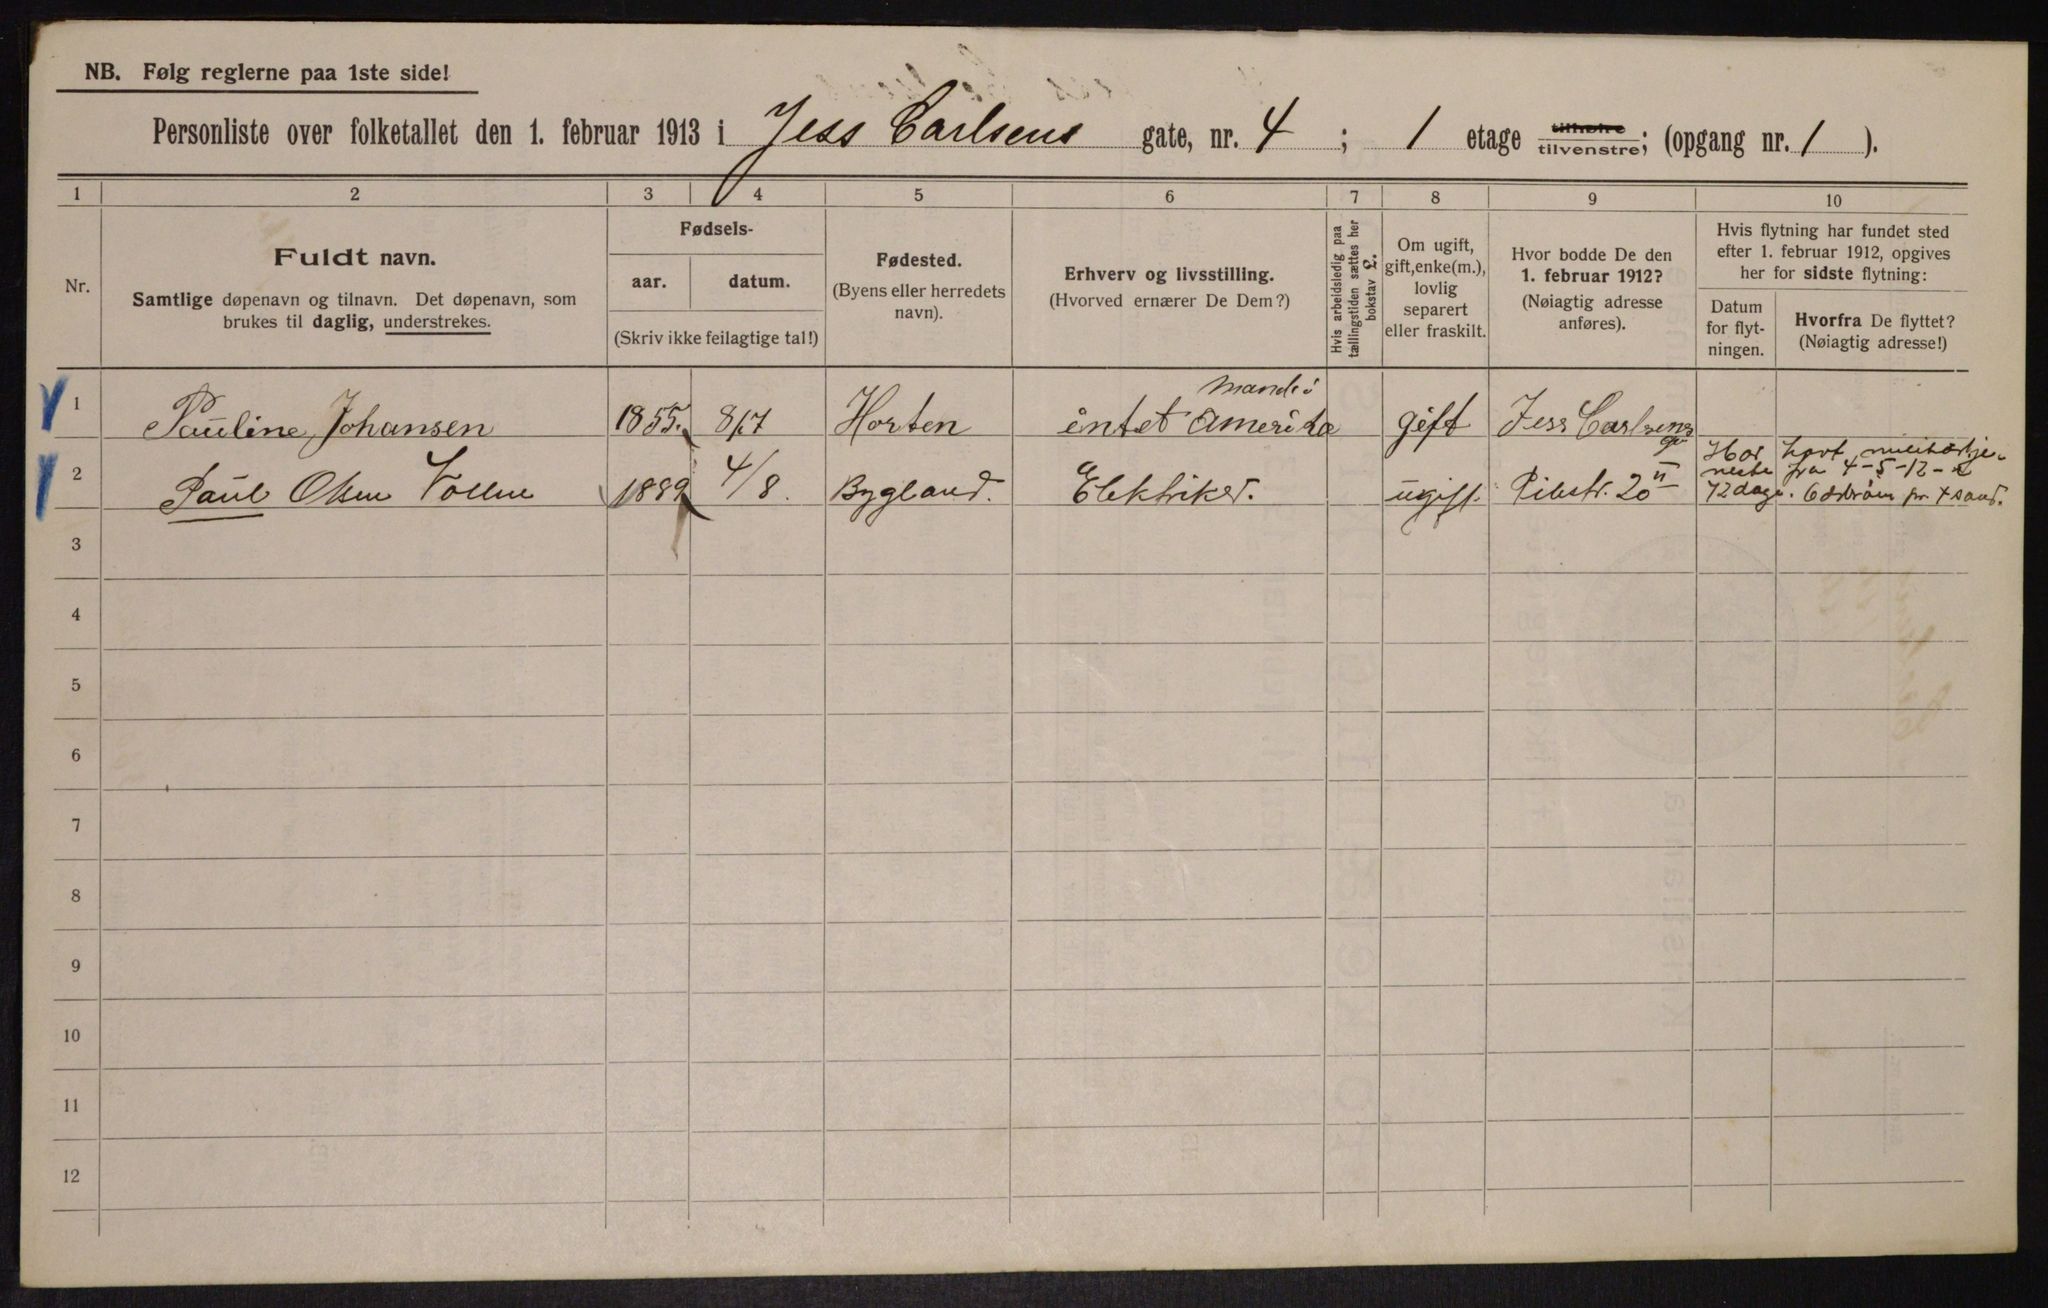 NB. Følg reglerne paa 1ste side!
Personliste over folketallet den 1. februar 1913 i Jess Carlsens gate, nr. 4 ; 1 etage tilhøire tilvenstre; (opgang nr. 1 ).
1 2 3 4 5 6 7 8 9 10
Nr.
Fuldt navn.
Samtlige døpenavn og tilnavn. Det døpenavn, som
brukes til daglig, understrekes.
Fødsels-
aar. datum.
(Skriv ikke feilagtige tal!)
Fødested.
(Byens eller herredets
navn).
Erhverv og livsstilling.
(Hvorved ernærer De Dem?)
Hvis arbeidsledig paa
tællingstiden sættes her
bokstav L.
Om ugift,
gift, enke(m.),
lovlig
separert
eller fraskilt.
Hvor bodde De den
1. februar 1912?
(Nøiagtig adresse
anføres).
Hvis flytning har fundet sted
efter 1. februar 1912, opgives
her for sidste flytning:
Datum
for flyt-
ningen.
Hvorfra De flyttet?
(Nøiagtig adresse!)
Mand i
1 Pauline Johansen 1855. 8/7 Horten intet Amerika gift Jess Carlsens
2 Paul Olsen Vollen 1889 4/8. Bygland. Elektriker. ugift. Pilestr. 20 II
Har havt militærtje-
neste fra 4-5-12
72 dage.
3
4
5
6
7
8
9
10
11
12